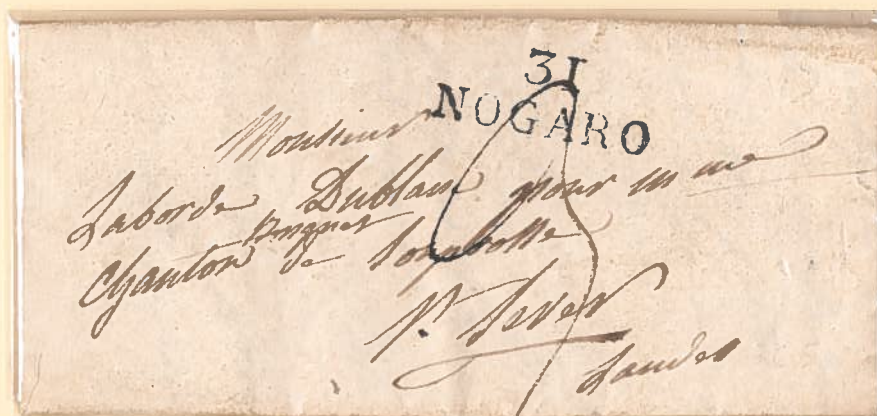 31
NOGARO
Monsieur
Laborde Dublanc pour un me
Chanton Busquet de
St Sever
Landes